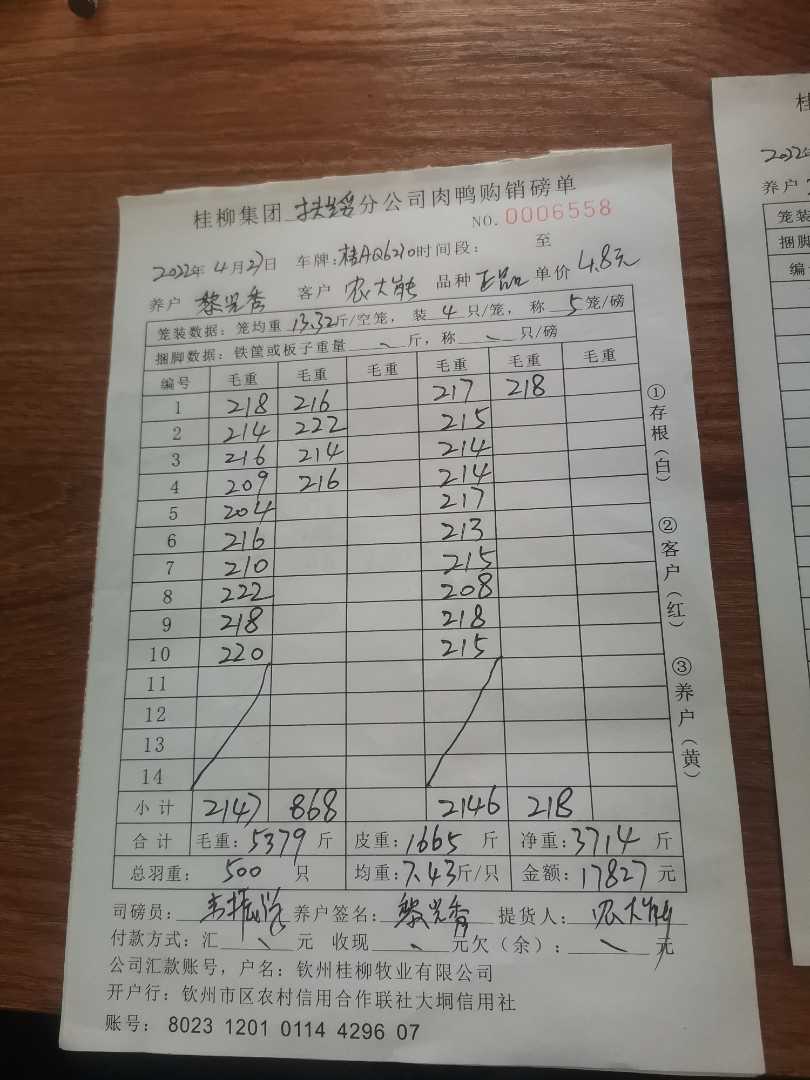 桂柳集团 扶绥 分公司肉鸭购销磅单
NO. 0006558
2022年 4月27日 车牌:桂AQ6210 时间段: 至
养户 黎兴秀 客户 农大能 品种 正品 单价 4.8元
笼装数据: 笼均重 13.32 斤/空笼, 装 4 只/笼, 称 5 笼/磅
捆脚数据: 铁筐或板子重量 斤, 称 只/磅
编号 毛重 毛重 毛重 毛重 毛重 毛重
1 218 216 217 218
2 214 222 215
3 216 214 214
4 209 216 214
5 204 217
6 216 213
7 210 215
8 222 208
9 218 218
10 220 215
11
12
13
14
小计 2147 868 2146 218
合计 毛重: 5379 斤 皮重: 1665 斤 净重: 3714 斤
总羽重: 500 只 均重: 7.43斤/只 金额: 17827 元
司磅员: 养户签名: 黎兴秀 提货人: 农大能
付款方式: 汇 元 收现 元欠(余): 元
公司汇款账号, 户名: 钦州桂柳牧业有限公司
开户行: 钦州市区农村信用合作联社大垌信用社
账号: 8023 1201 0114 4296 07
①存根(白) ②客户(红) ③养户(黄)
桂
2022年
养户
笼装
捆脚
编